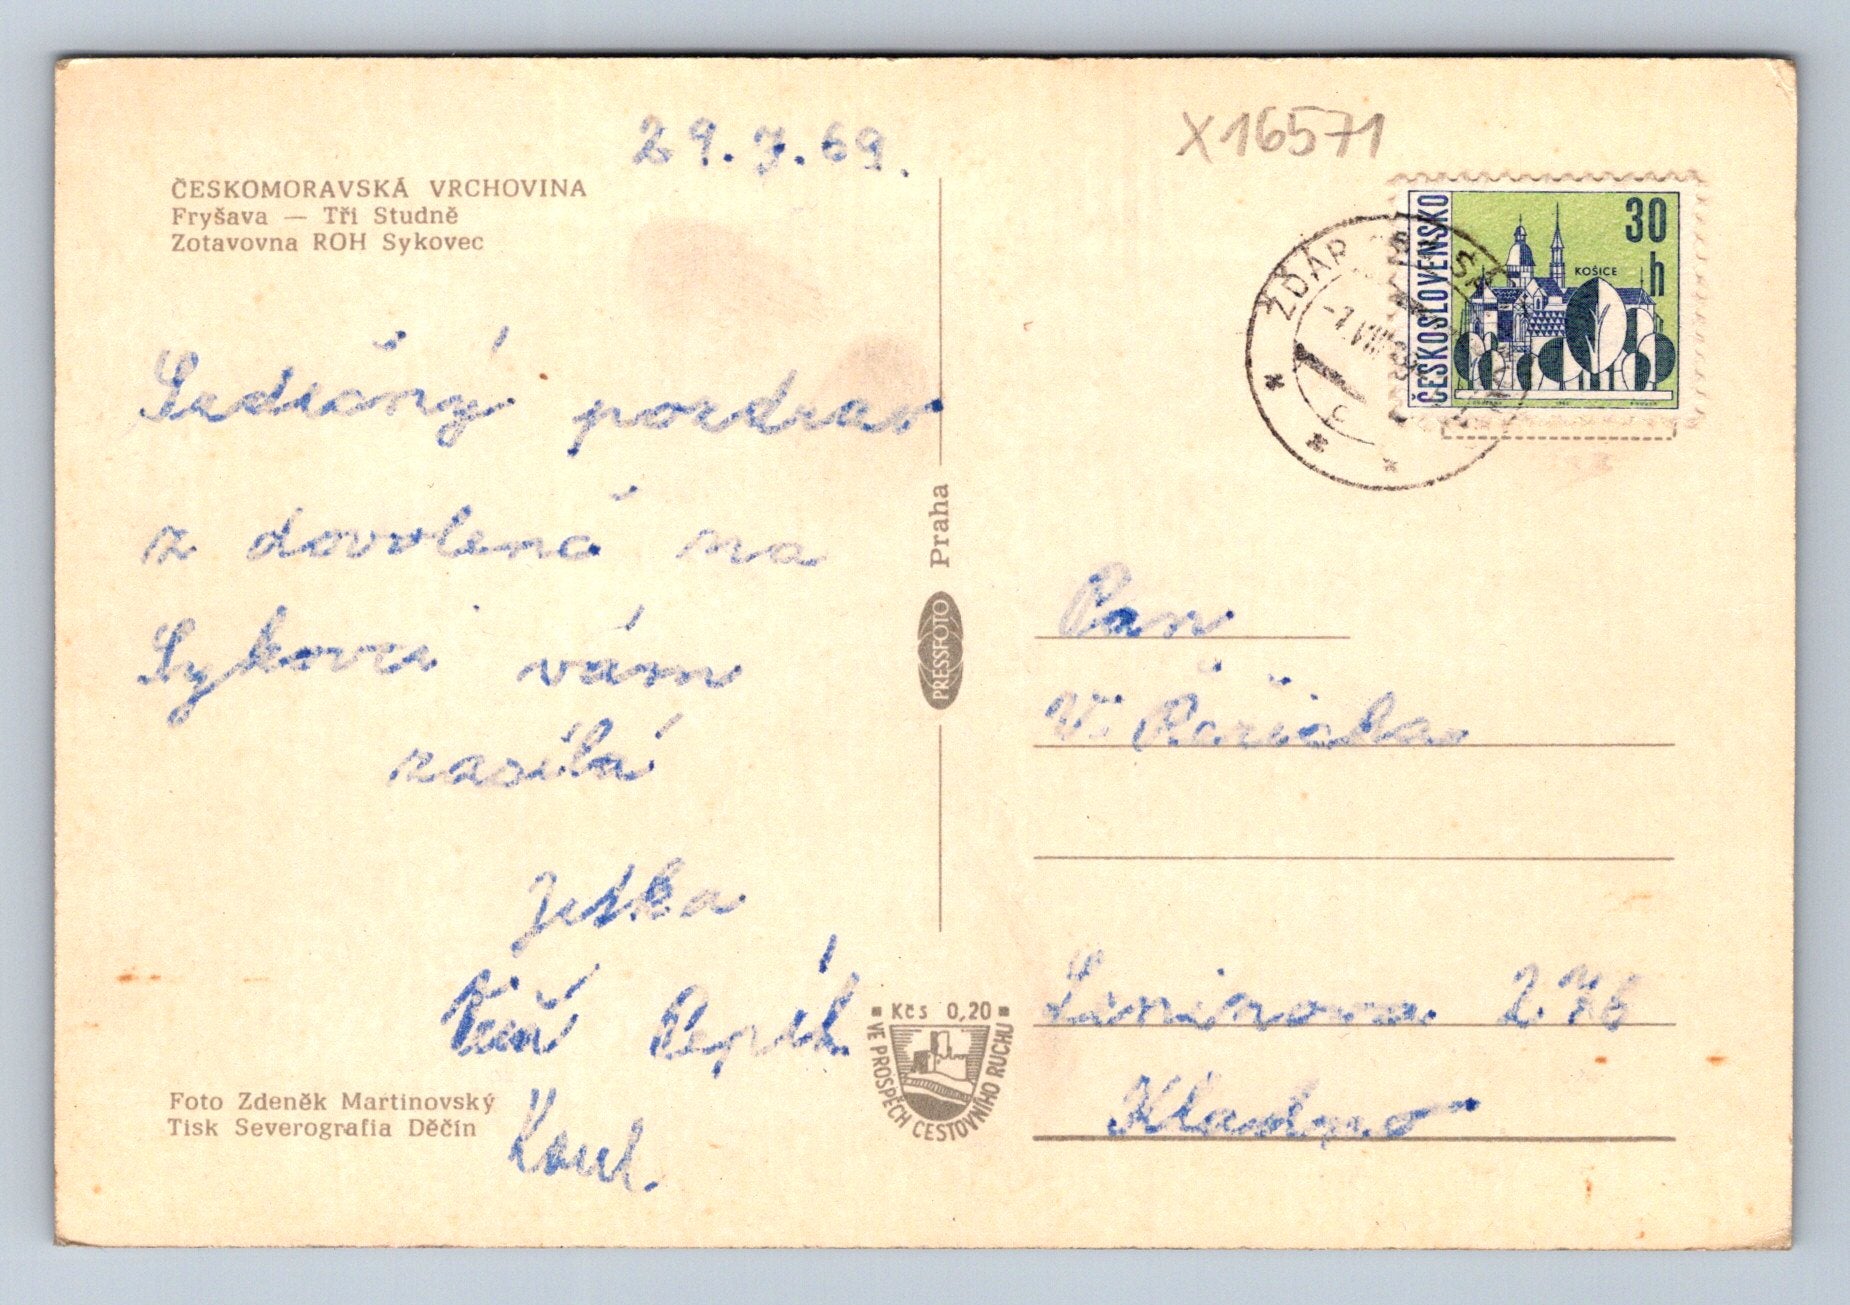 29.7.69.
X16571
ČESKOMORAVSKÁ VRCHOVINA
Fryšava — Tři Studně
Zotavovna ROH Sykovec
ČESKOSLOVENSKO
30
h
KOŠICE
ŽĎÁR
Srdečný pozdrav
z dovolené na
Sykovci vám
zasílá
Jitka
Pepík
PRESSFOTO Praha
Pan
V.
Leninova 276
Kladno
Kčs 0,20
VE PROSPĚCH CESTOVNÍHO RUCHU
Foto Zdeněk Martinovský
Tisk Severografia Děčín